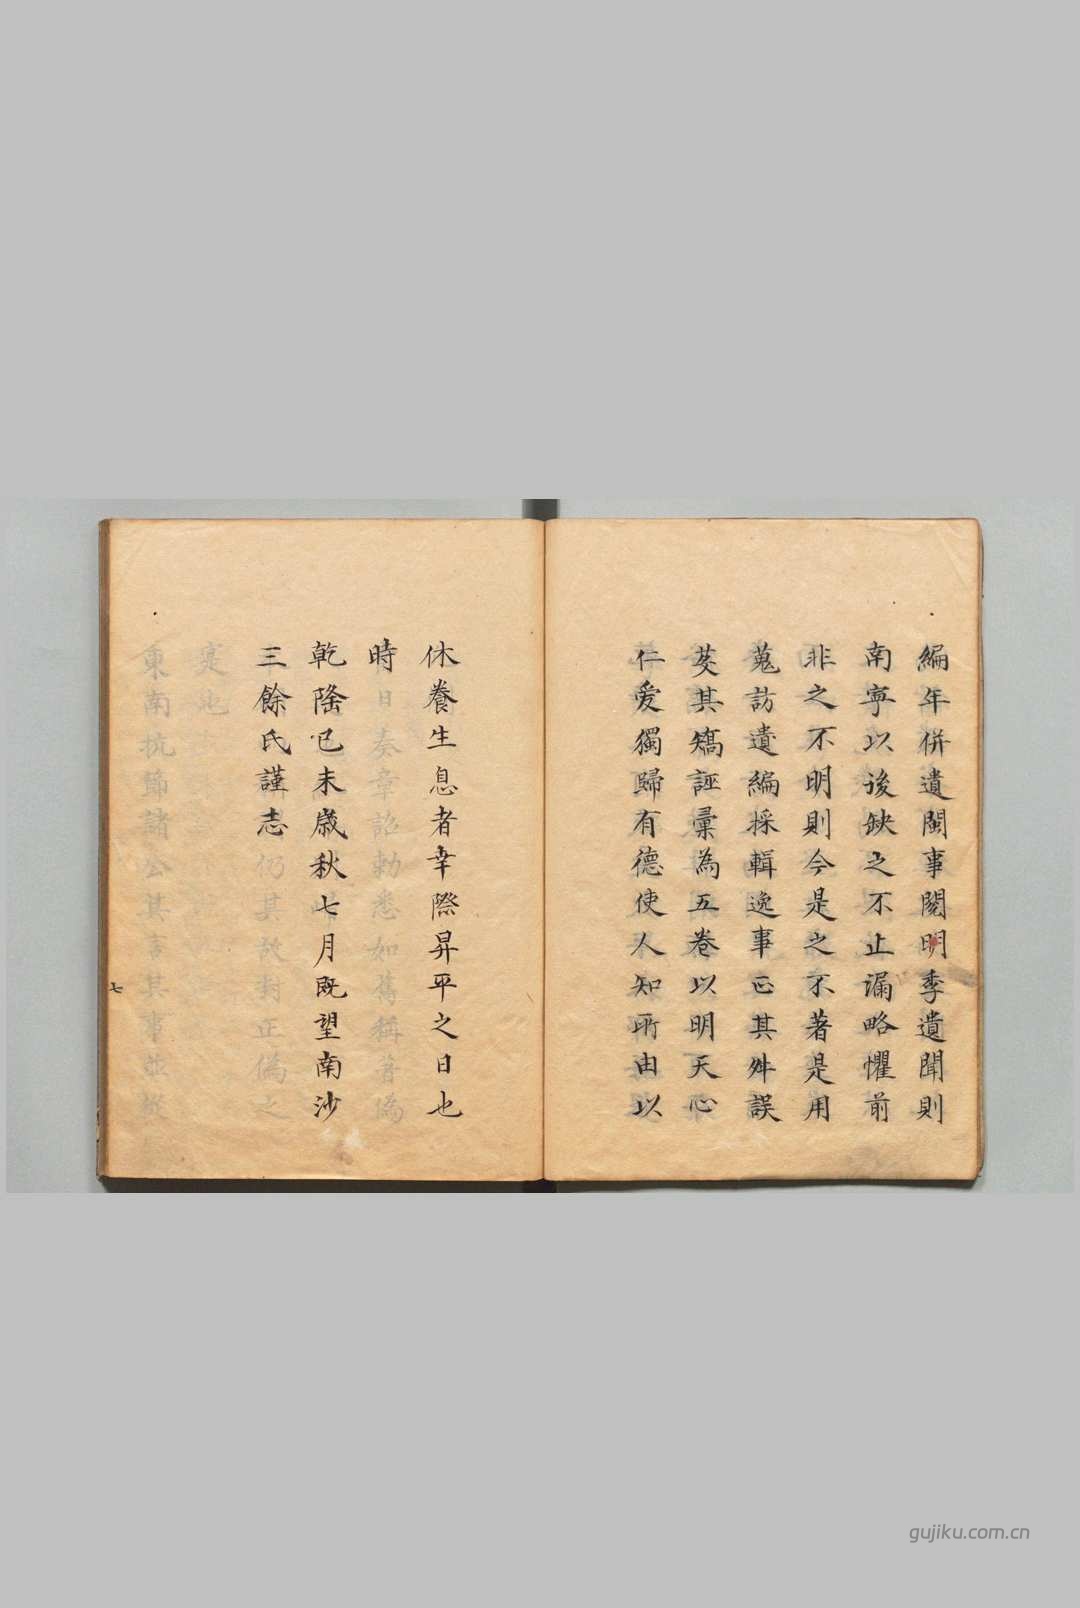 編年併遺閩事閱明季遺聞則
南寧以後缺之不止漏略懼前
非之不明則今是之不著是用
蒐訪遺編採輯逸事正其舛誤
芟其矯誣彙為五卷以明天心
仁愛獨歸有德使人知所由以
休養生息者幸際昇平之日也
時
乾隆己未歲秋七月既望南沙
三餘氏謹志
七
gujiku.com.cn